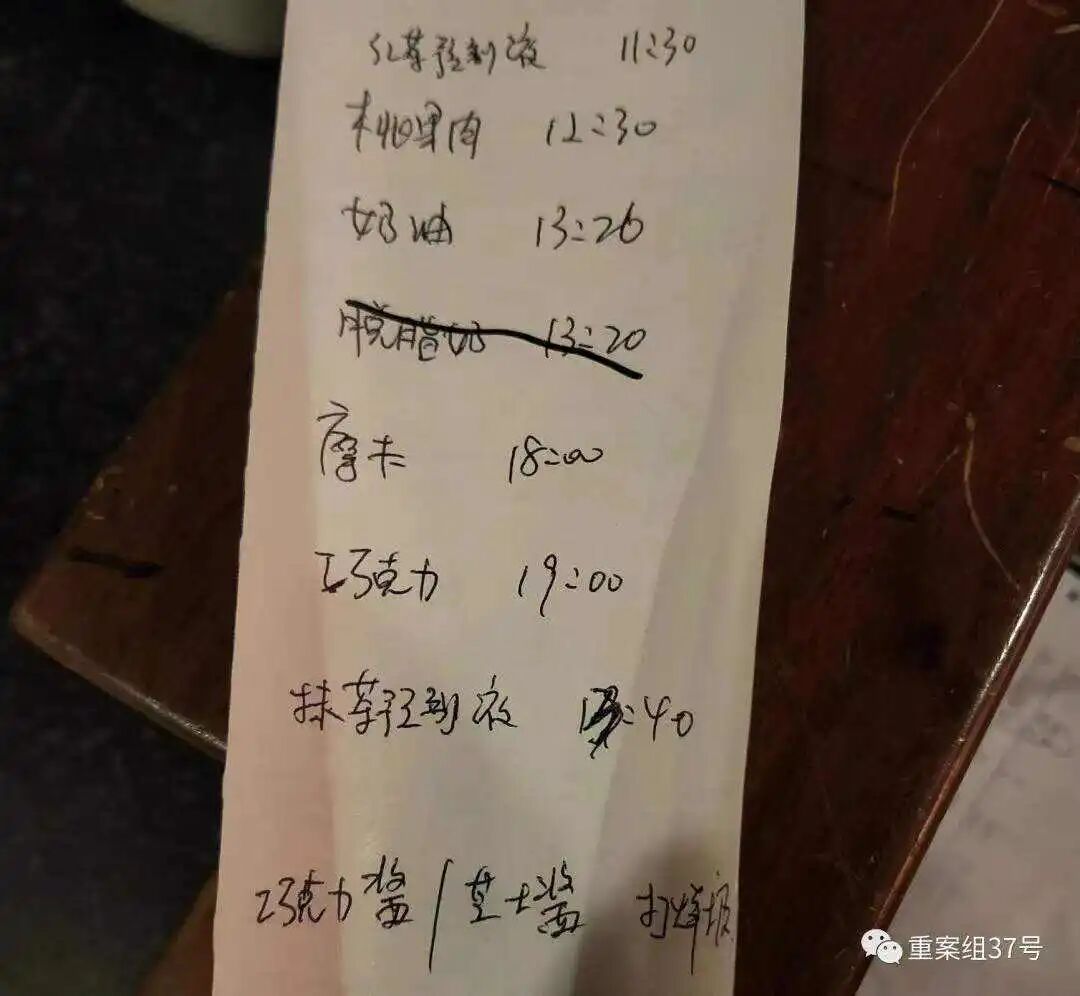 红茶预制液 11:30
桃果肉 12:30
奶油 13:26
脱脂奶 13:20
摩卡 18:00
巧克力 19:00
抹茶预制液 :40
巧克力酱/芝士酱 打烊报
重案组37号